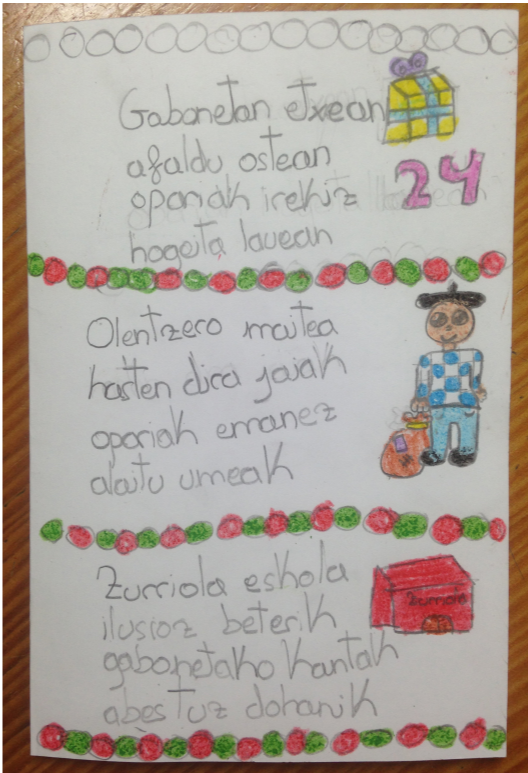 Gabonetan etxean
afaldu ostean
opariak irekiz
24
hogeita lauean
Olentzero maitea
hasten dira jaiak
opariak emanez
alaitu umeak
Zurriola eskola
ilusioz beterik
Zurriola
gabonetako kantak
abestuz dohanik